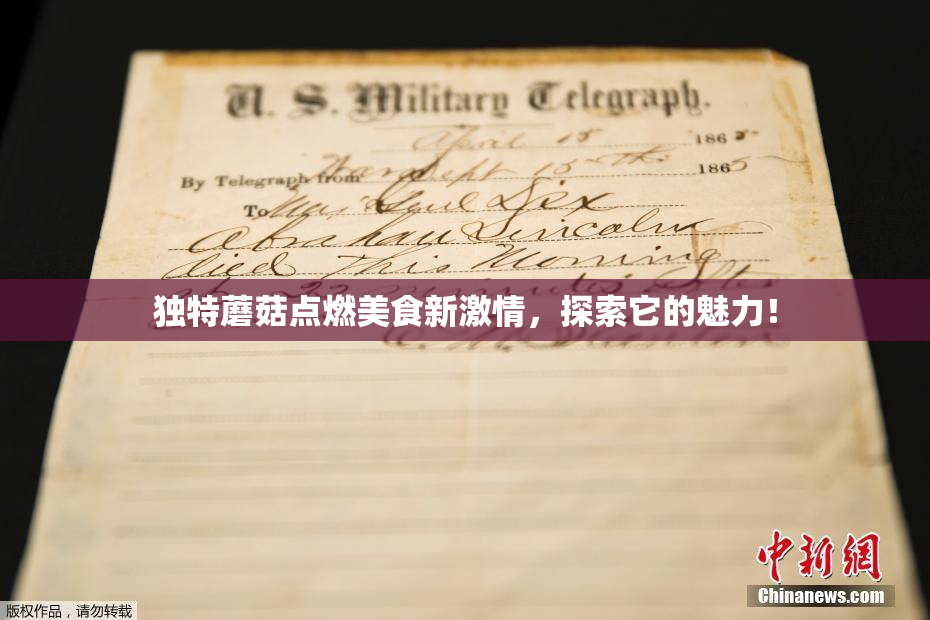 U. S. Military Telegraph.
April 15 1865
By Telegraph from War Dept 15th 1865
To Maj Genl Dix
Abraham Lincoln
died This Morning
at 22 minutes after
独特蘑菇点燃美食新激情，探索它的魅力！
E. M. Stanton
中新网
Chinanews.com
版权作品，请勿转载